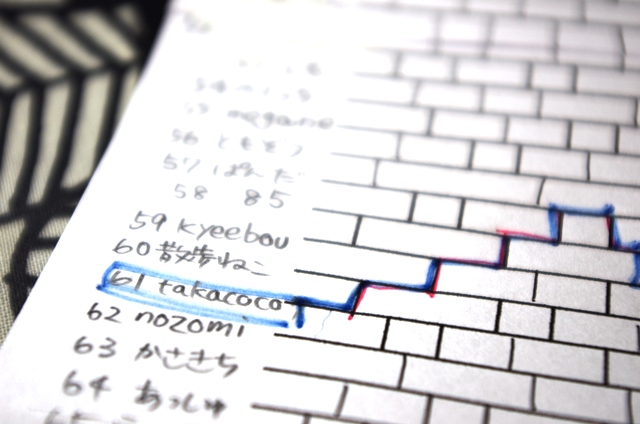 56 ともぞう
57 ぱんだ
58 85
59 kyeebou
60 散歩ねこ
61 takacoco
62 nozomi
63 かささぎち
64 あっしゅ